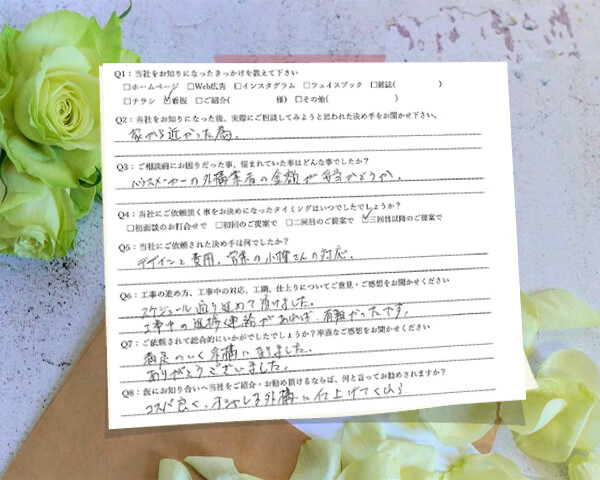 Q1：当社をお知りになったきっかけを教えて下さい
□ホームページ □Web広告 □インスタグラム □フェイスブック □雑誌( )
□チラシ ☑看板 □ご紹介( 様) □その他( )
Q2：当社をお知りになった後、実際にご相談してみようと思われた決め手をお聞かせ下さい。
家から近かった為。
Q3：ご相談前にお困りだった事、悩まれていた事はどんな事でしたか？
ハウスメーカーの外構業者の金額が妥当かどうか。
Q4：当社にご依頼頂く事をお決めになったタイミングはいつでしたでしょうか？
□初面談のお打合せで □初回のご提案で □二回目のご提案で ☑三回目以降のご提案で
Q5：当社にご依頼された決め手は何でしたか？
デザインと費用。営業の小畑さんの対応。
Q6：工事の進め方、工事中の対応、工期、仕上りについてご意見・ご感想をお聞かせください
スケジュール通り進めて頂けました。
工事中の進捗連絡があれば、有難かったです。
Q7：ご依頼されて総合的にいかがでしたでしょうか？率直なご感想をお聞かせください
満足のいく外構になりました。
ありがとうございました。
Q8：仮にお知り合いへ当社をご紹介・お勧め頂けるならば、何と言ってお勧めされますか？
コスパ良く、オシャレな外構に仕上げてくれる